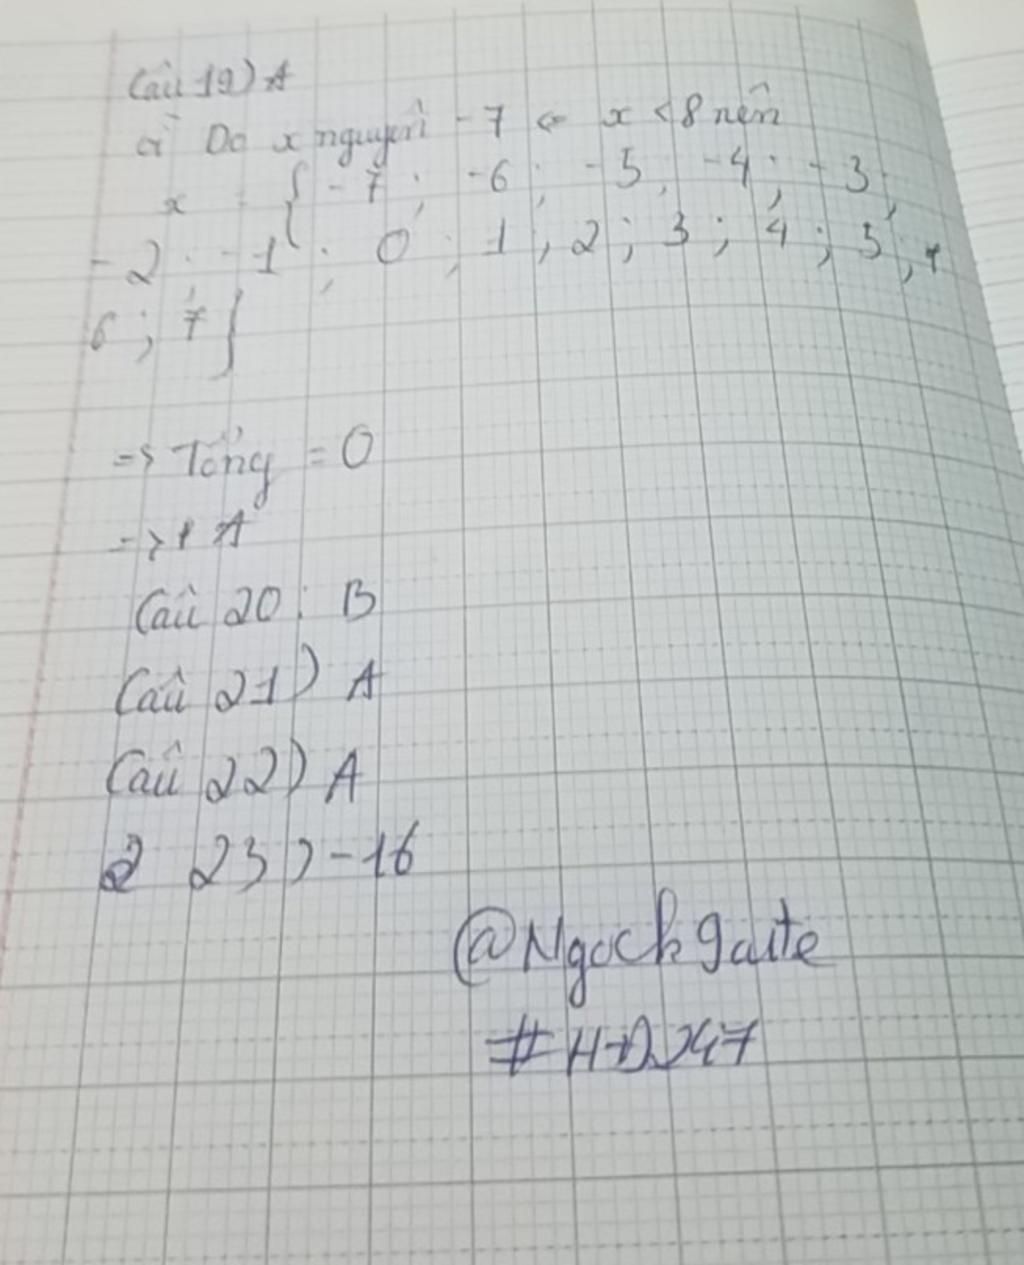 Câu 19) A
Do x nguyên -7 <= x < 8 nên
x {-7; -6; -5; -4; -3;
-2; -1; 0; 1; 2; 3; 4; 5;
6; 7}
=> Tổng = 0
=> A
Câu 20: B
Câu 21) A
Câu 22) A
2 23) -16
@Ngockgaute
#HDX47